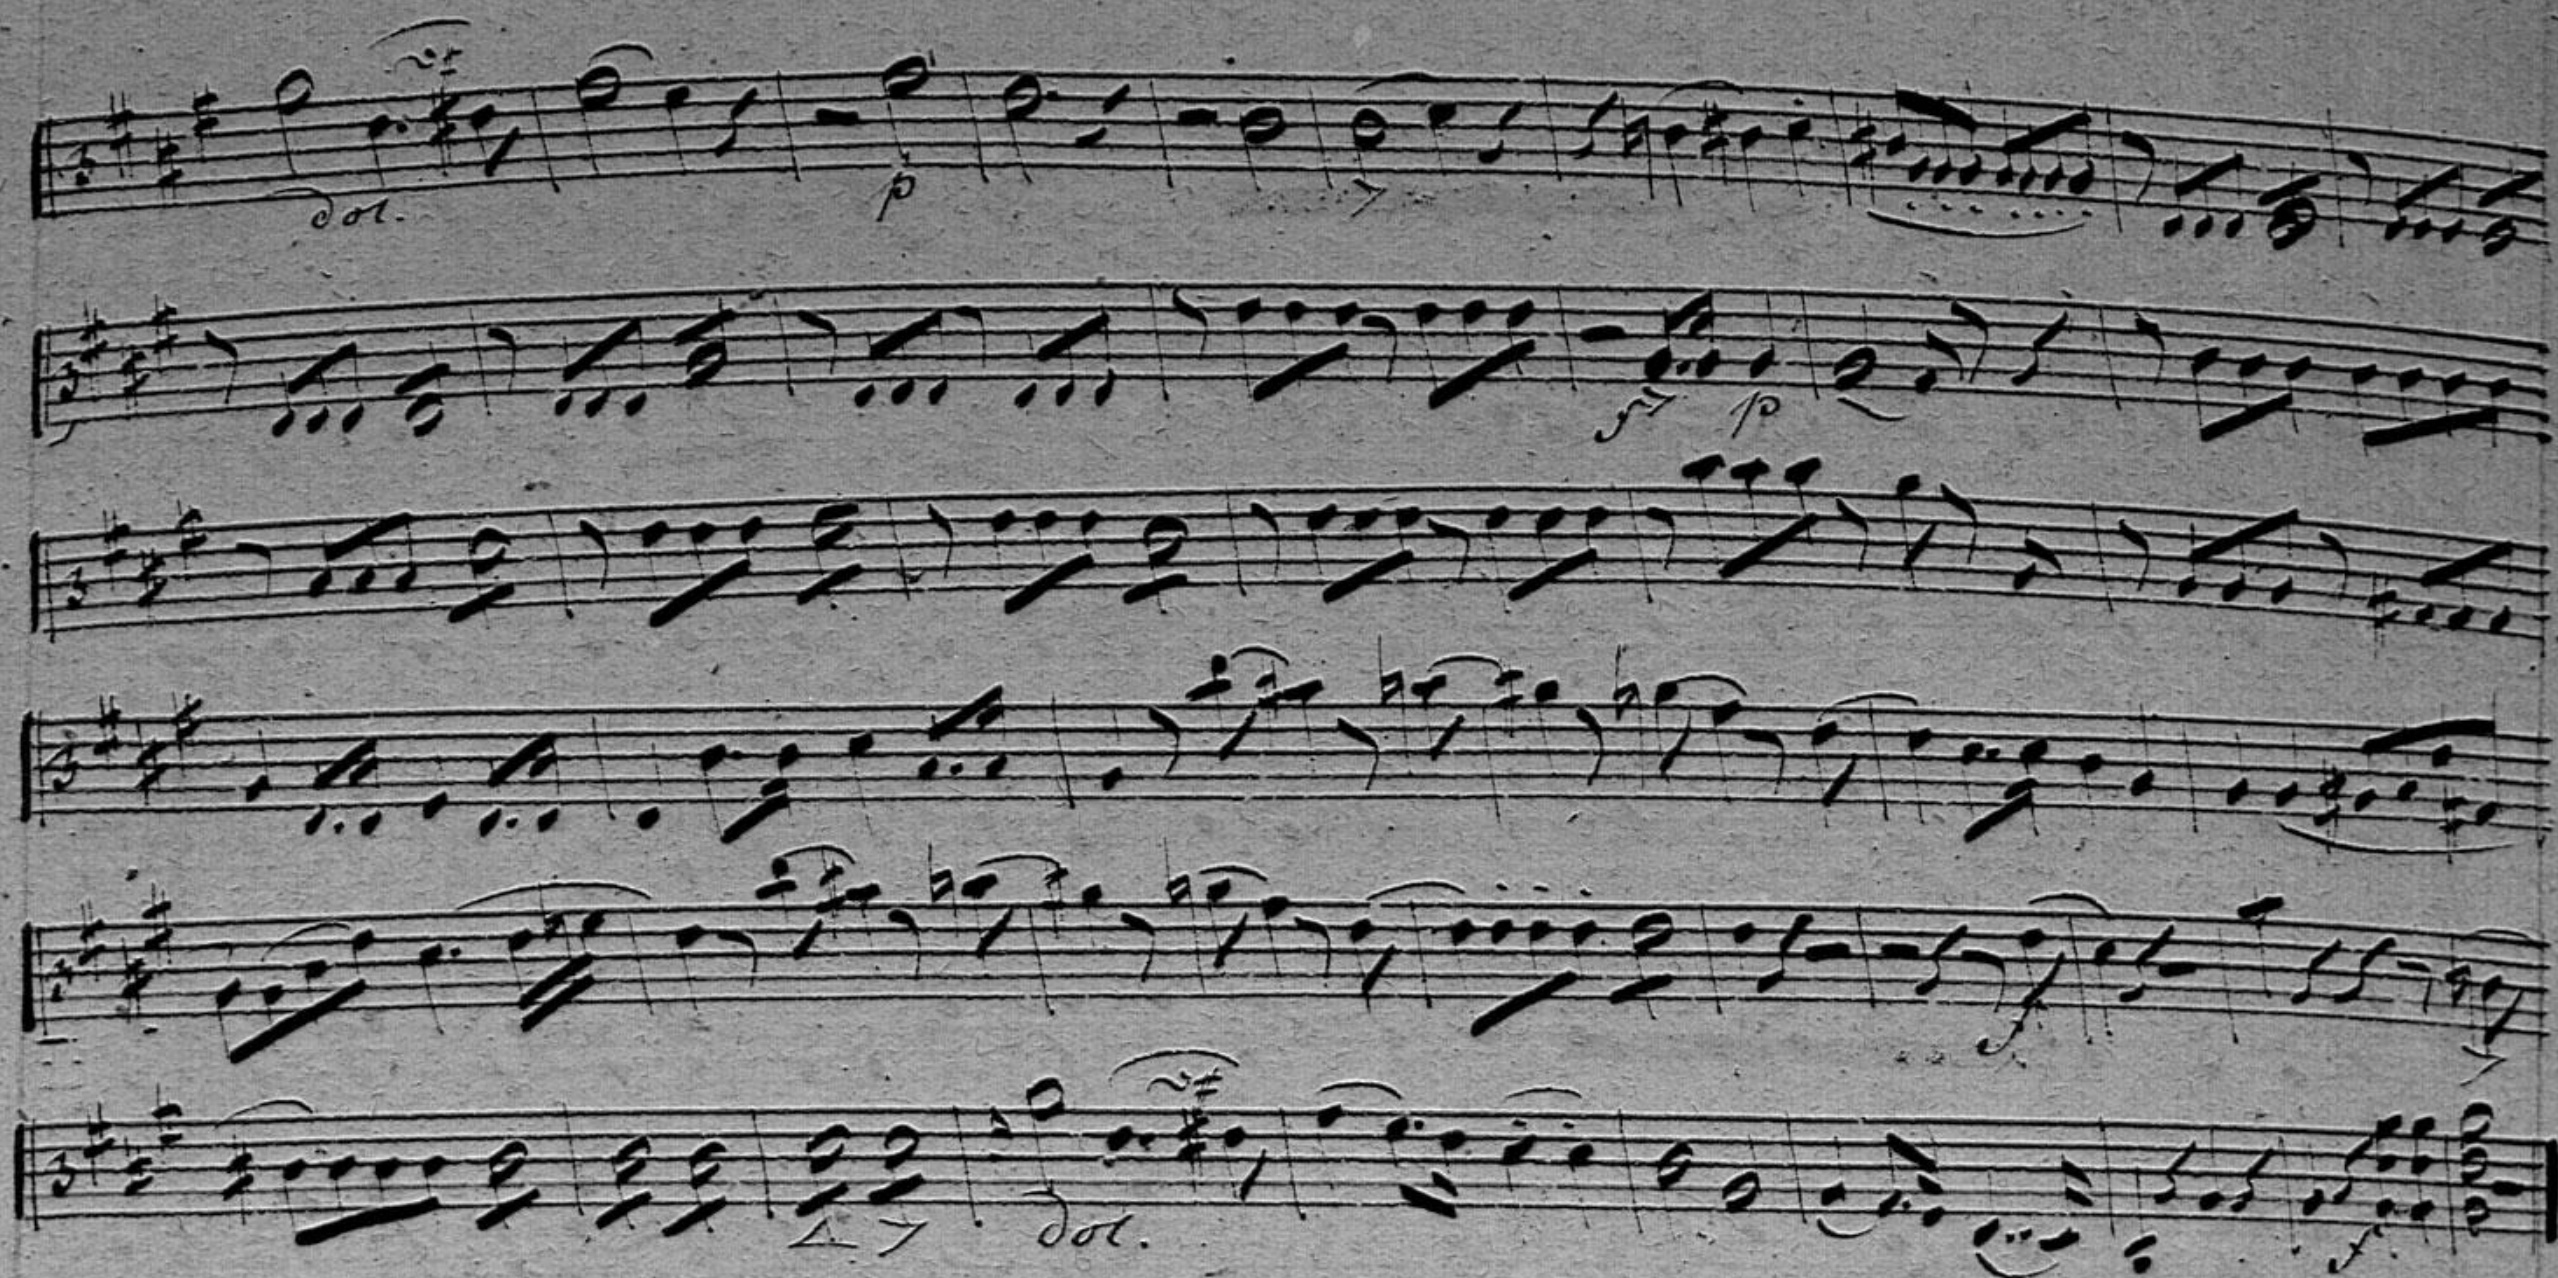 dol. p
f p
f
dol. f